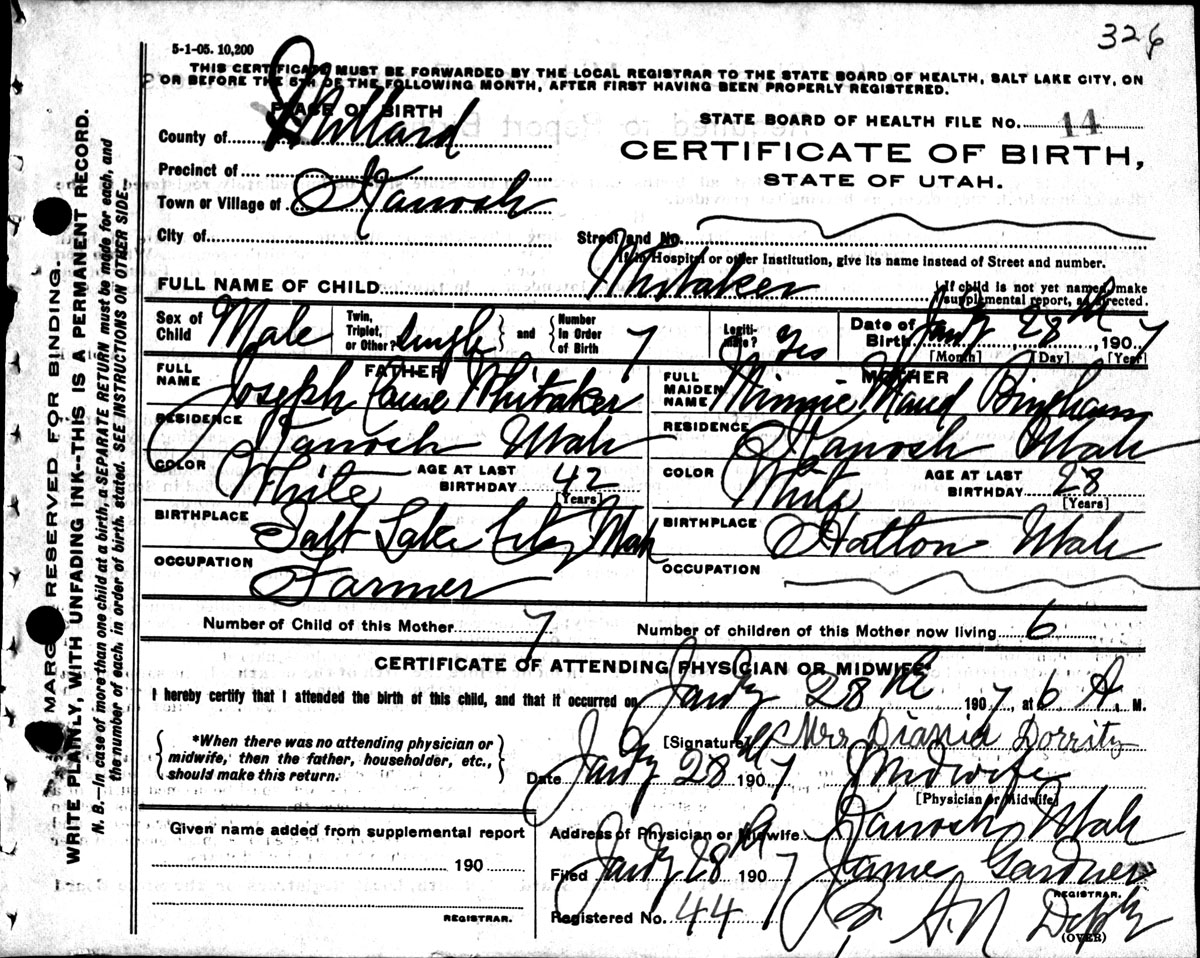 326
5-1-05. 10,200
THIS CERTIFICATE MUST BE FORWARDED BY THE LOCAL REGISTRAR TO THE STATE BOARD OF HEALTH, SALT LAKE CITY, ON
OR BEFORE THE 5TH OF THE FOLLOWING MONTH, AFTER FIRST HAVING BEEN PROPERLY REGISTERED.
PLACE OF BIRTH
County of Millard
Precinct of
Town or Village of Kanosh
City of
STATE BOARD OF HEALTH FILE NO. 14
CERTIFICATE OF BIRTH,
STATE OF UTAH.
Street and No.
If in Hospital or other Institution, give its name instead of Street and number.
FULL NAME OF CHILD Whitaker
If child is not yet named, make
supplemental report, as directed.
Sex of Child Male
Twin, Triplet, or Other? Single and Number in Order of Birth 7
Legitimate? Yes
Date of Birth Jany 28th, 1907
[Month] [Day] [Year]
FATHER
FULL NAME Joseph Whitaker
RESIDENCE Kanosh Utah
COLOR White AGE AT LAST BIRTHDAY 42
[Years]
BIRTHPLACE Salt Lake City Utah
OCCUPATION Farmer
MOTHER
FULL MAIDEN NAME Minnie Maud Bingham
RESIDENCE Kanosh Utah
COLOR White AGE AT LAST BIRTHDAY 28
[Years]
BIRTHPLACE Hatton Utah
OCCUPATION
Number of Child of this Mother 7 Number of children of this Mother now living 6
CERTIFICATE OF ATTENDING PHYSICIAN OR MIDWIFE*
I hereby certify that I attended the birth of this child, and that it occurred on Jany 28th 1907, at 6 A. M.
*When there was no attending physician or
midwife, then the father, householder, etc.,
should make this return.
[Signature] Mrs Diania Dorrity
Date Jany 28th 1907 Midwife
[Physician or Midwife]
Address of Physician or Midwife Kanosh Utah
Given name added from supplemental report
190
REGISTRAR.
Filed Jany 28th 1907 James Gardner
REGISTRAR.
Registered No. 44
(OVER)
MARGIN RESERVED FOR BINDING.
WRITE PLAINLY, WITH UNFADING INK--THIS IS A PERMANENT RECORD.
N. B.--In case of more than one child at a birth, a SEPARATE RETURN must be made for each, and
the number of each, in order of birth, stated. SEE INSTRUCTIONS ON OTHER SIDE.